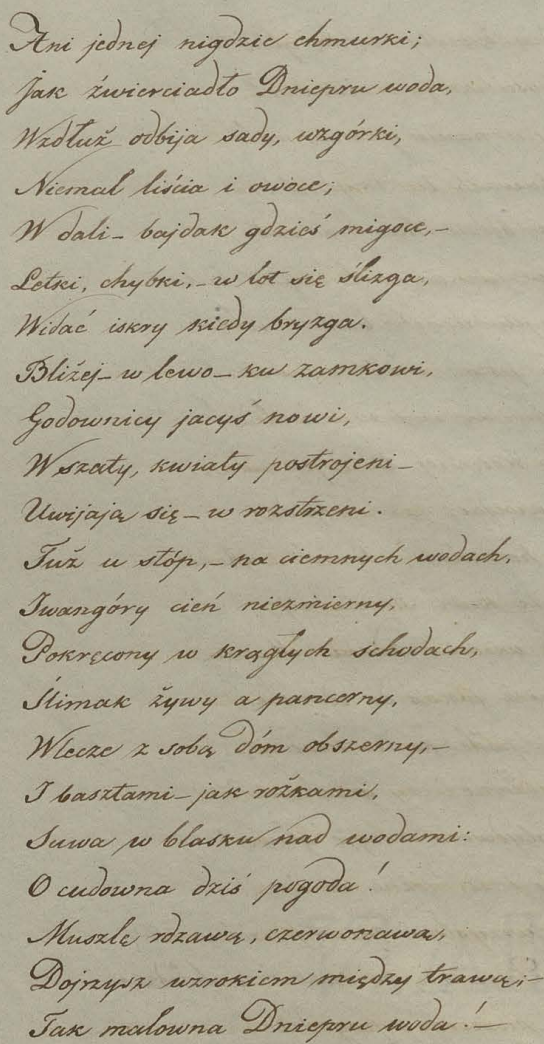 Ani jednej nigdzie chmurki;
Jak źwierciadło Dniepru woda,
Wzdłuż odbija sady, wzgórki,
Niemal liścia i owoce;
W dali – bajdak gdzieś migoce, –
Letki, chybki, – w lot się ślizga,
Widać iskry kiedy bryzga.
Bliżej – w lewo – ku zamkowi,
Godownicy jacyś nowi,
W szaty, kwiaty postrojeni –
Uwijają się – w rozstrzeni.
Tuż u stóp, – na ciemnych wodach,
Iwangóry cień niezmierny,
Pokręcony w krągłych schodach,
Ślimak żywy a pancerny,
Wlecze z sobą dóm obszerny, –
I basztami – jak rożkami,
Suwa w blasku nad wodami:
O cudowna dziś pogoda!
Muszlę rdzawą, czerwonawą,
Dojrzysz wzrokiem między trawą; –
Tak malowna Dniepru woda! –